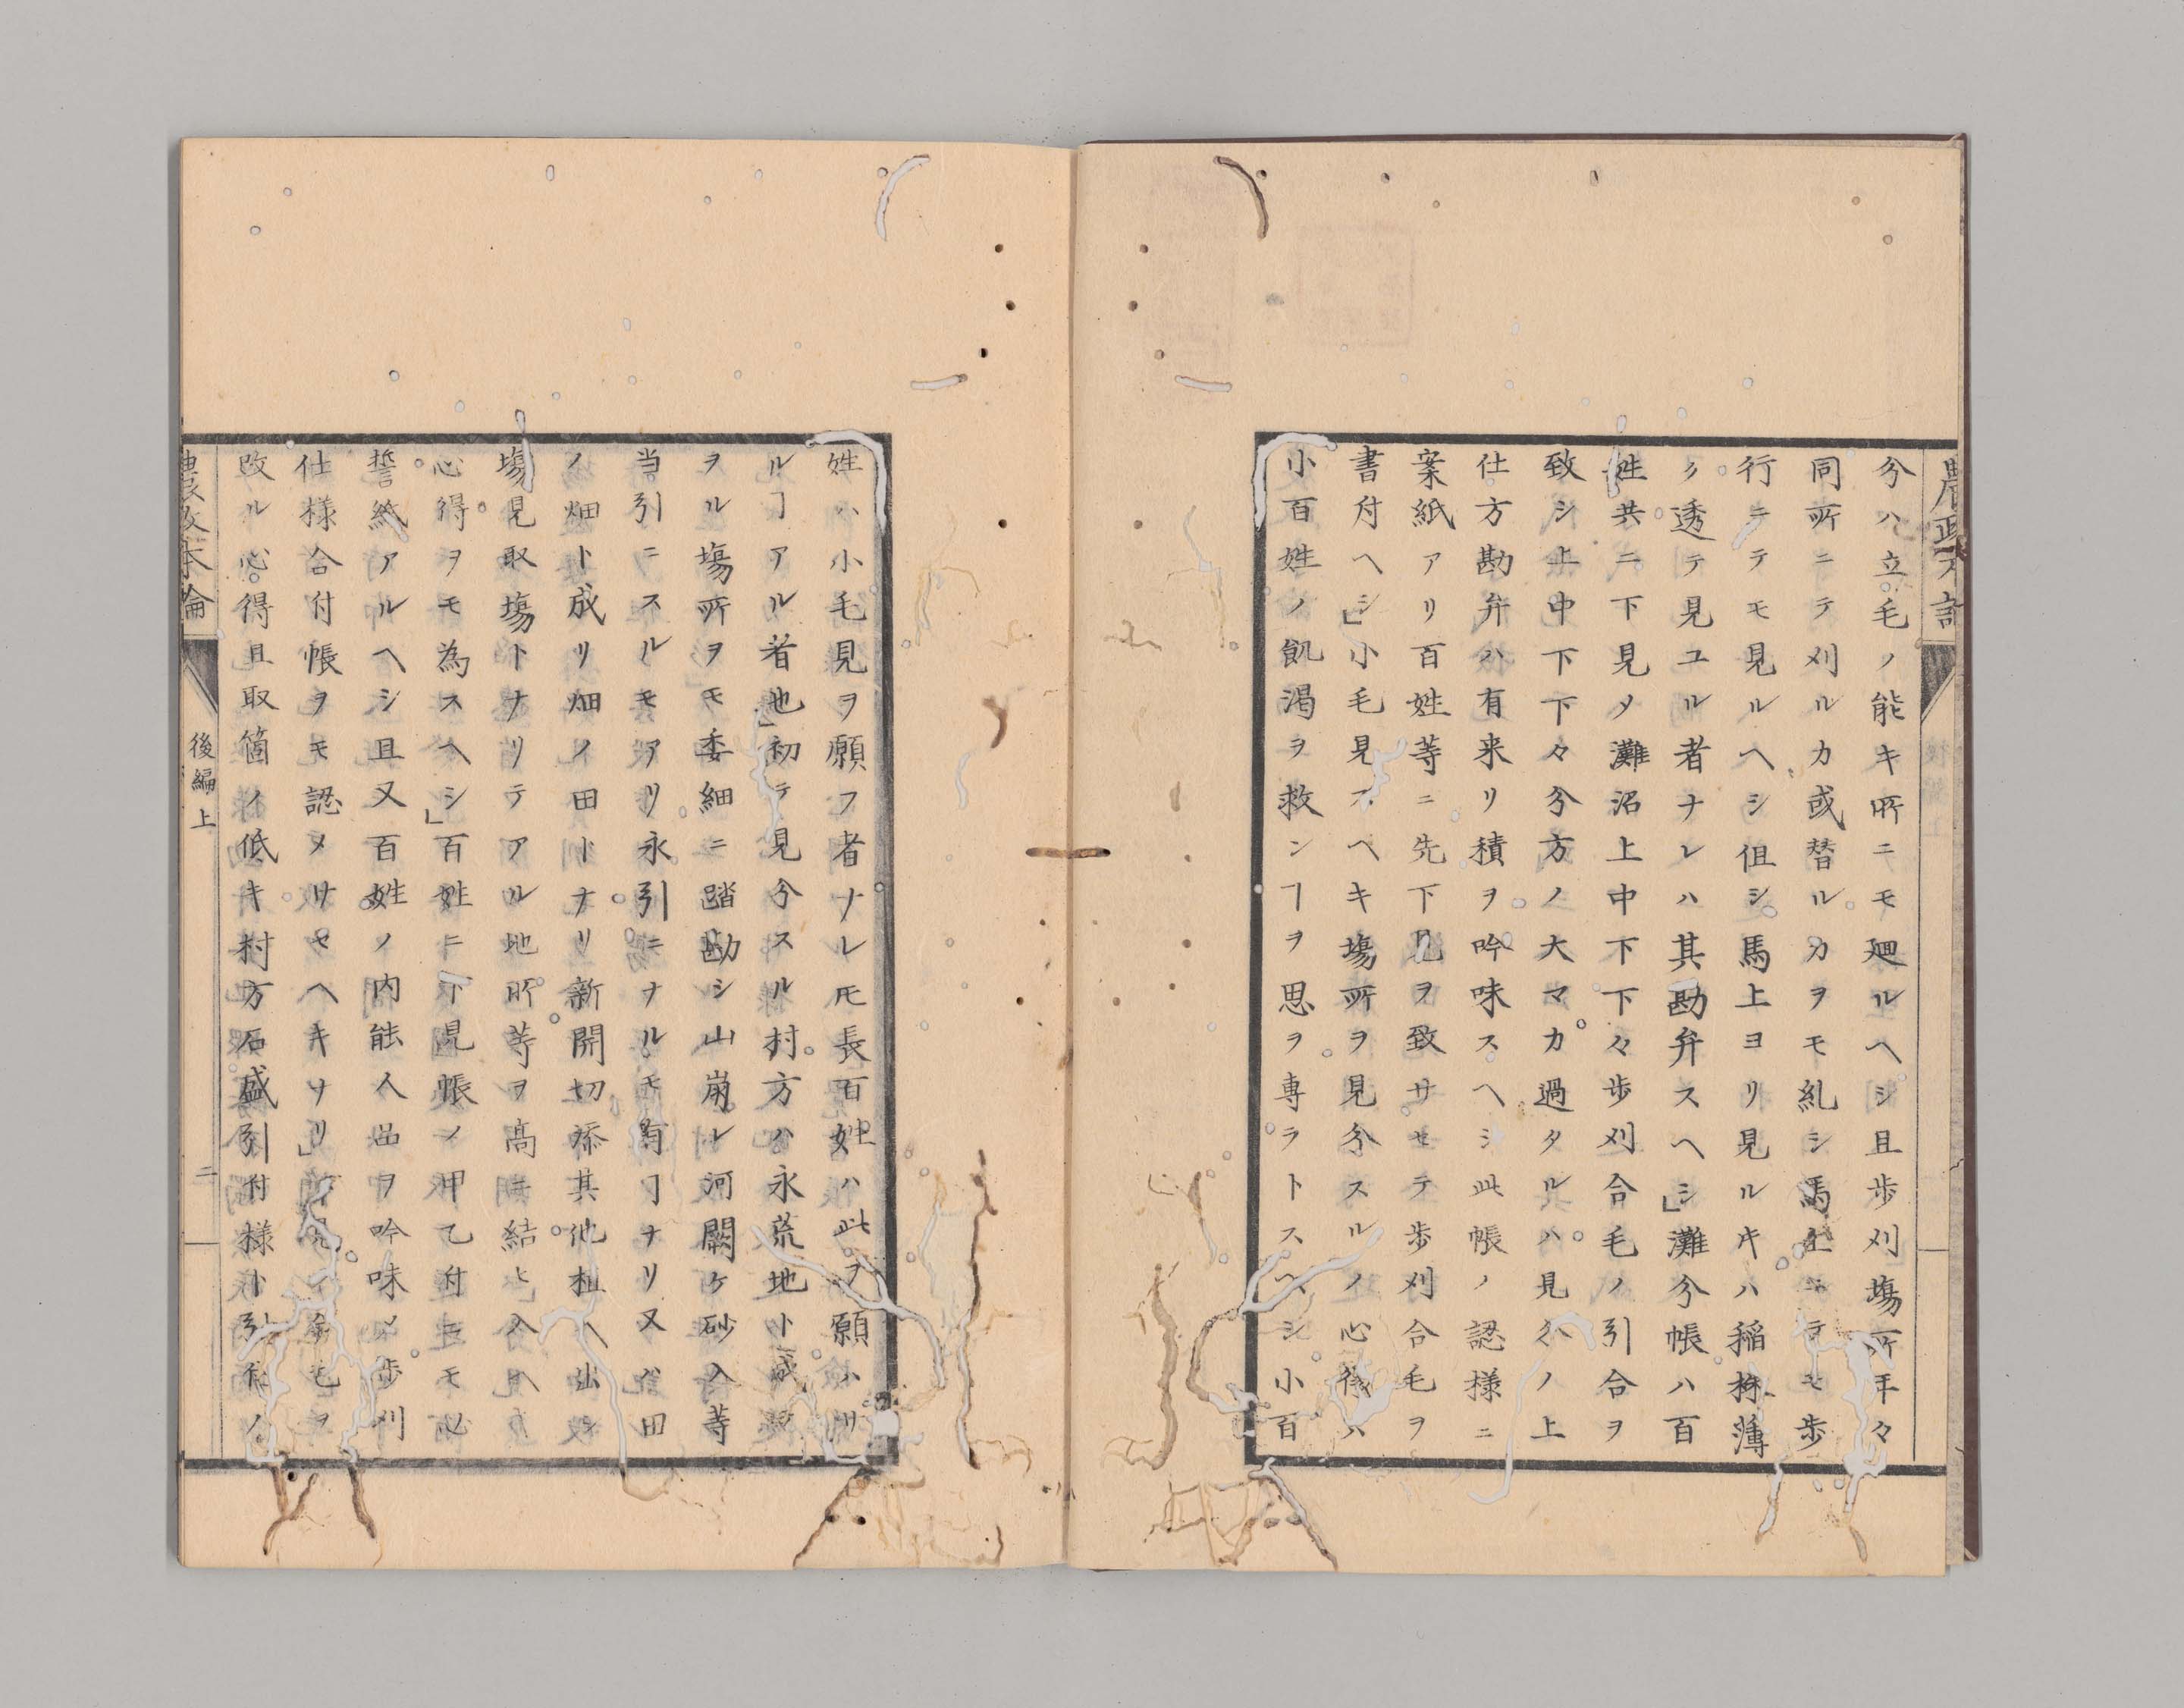 分ハ立毛ノ能キ所ニモ廻ルヘシ且歩刈塲所年々
同所ニテ刈ルカ或替ルカヲモ糺シ馬上ニテモ歩
行ニテモ見ルヘシ但シ馬上ヨリ見ルキハ稲株薄
ク透テ見ユル者ナレハ其勘弁スヘシ」灘分帳ハ百
姓共ニ下見タ灘沼上中下下々歩刈合毛ノ引合ヲ
致シ上中下下々分方ノ大マカ過タルハ見分ノ上
仕方勘弁ハ有来リ積ヲ吟味スヘシ此帳ノ認様ニ
案紙アリ百姓等ニ先下見ヲ致サセテ歩刈合毛ヲ
書付ヘシ」小毛見スヘキ塲所ヲ見分スルノ心得ハ
小百姓ノ飢渇ヲ救ンヿヲ思ヲ専ラトスヘシ小百
姓ハ小毛見ヲ願フ者ナレ𪜈長百姓ハ此ヲ願ハサ
ルヿアル者也」初テ見分スル村方ハ永荒地ト成
ヲル塲所ヲモ委細ニ踏勘シ山崩レ河闕ケ砂入等
当引ニスルモアリ永引ニナルモ有ヿナリ又ハ田
ノ畑ト成リ畑ノ田トナリ新開切添其他林ヘ出シ
塲見取塲トナリテアル地所等ヲ高ニ結ヒ入ヘ
心得ヲモ為スヘシ」百姓ニ下見帳ノ甲乙付ニモ必
誓紙アルヘシ且又百姓ノ内能人品ヲ吟味シ歩刈
仕様合付帳ヲモ認メサセヘキナリ」
改ル心得且取箇ノ低キ村方石盛引付様ト引
農政本論
後編上
二